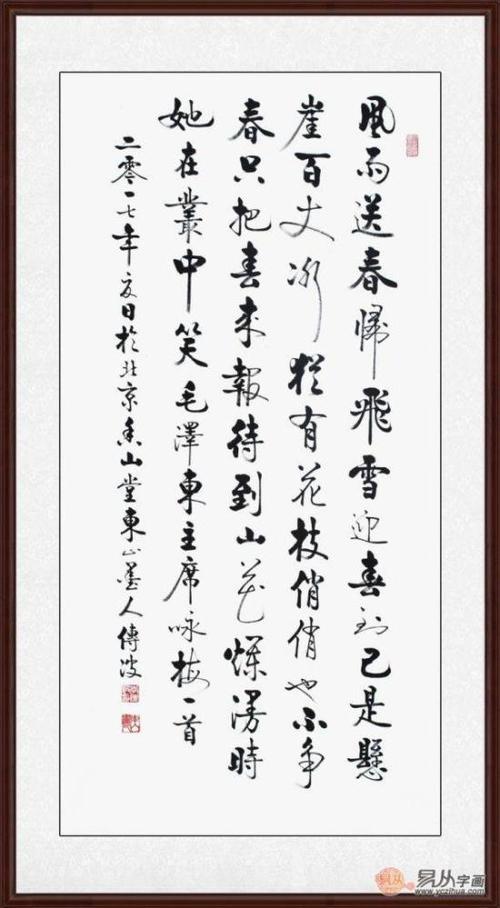 風雨送春歸飛雪迎春到已是懸
崖百丈冰猶有花枝俏俏也不争
春只把春来報待到山花爛漫時
她在叢中笑毛澤東主席咏梅一首
二零一七年夏日於北京香山堂東山墨人傳波
易从字画
www.yczihua.com